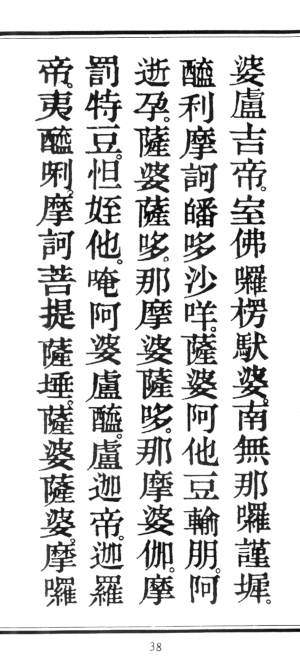 婆盧吉帝。室佛囉楞馱婆。南無那囉謹墀。
醯利摩訶皤哆沙咩。薩婆阿他豆輸朋。阿
逝孕。薩婆薩哆。那摩婆薩哆。那摩婆伽。摩
罰特豆。怛姪他。唵阿婆盧醯。盧迦帝。迦羅
帝。夷醯唎。摩訶菩提薩埵。薩婆薩婆。摩囉
38